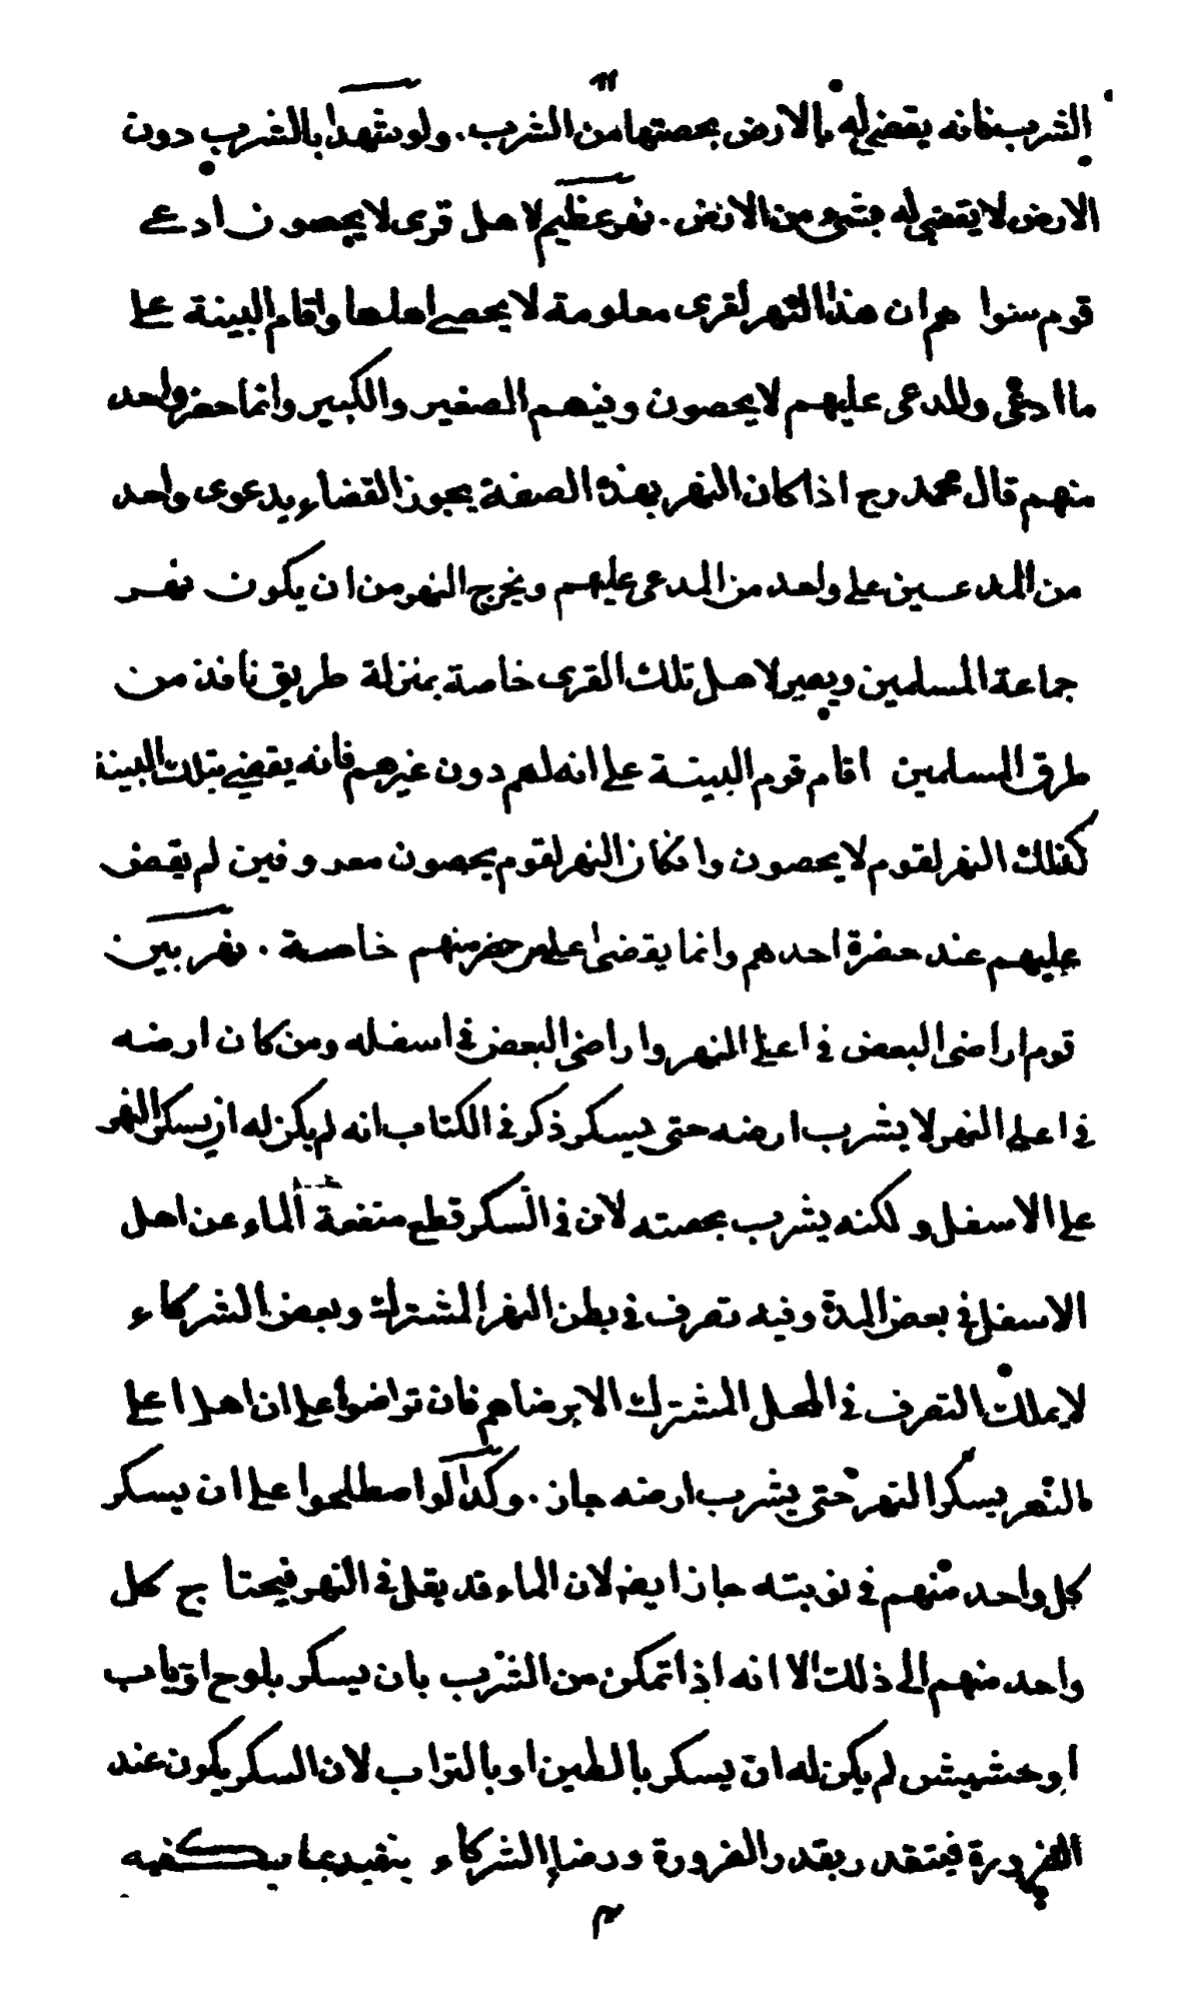 ١١
الشرب فانه يقضى له بالارض بحصتها من الشرب . ولو شهدا بالشرب دون
الارض لا يقضى له بشئ من الارض . نهر عظيم لاهل قرى لا يحصون ادعى
قوم سنوا هم ان هذا النهر لقرى معلومة لا يحصى اهلها واقام البينة على
ما ادعى والمدعى عليهم لا يحصون وبينهم الصغير والكبير وانما حضر واحد
منهم قال محمد رح اذا كان النهر بهذه الصفة يجوز القضاء بدعوى واحد
من المدعيين على واحد من المدعى عليهم ويخرج النهر من ان يكون نهر
جماعة المسلمين ويصير لاهل تلك القرى خاصة بمنزلة طريق نافذ من
طرق المسلمين اقام قوم البينة على انه لهم دون غيرهم فانه يقضى بتلك البينة
كذلك النهر لقوم لا يحصون وان كان النهر لقوم يحصون معروفين لم يقض
عليهم عند حضرة احدهم وانما يقضى على من حضر منهم خاصة . نهر بين
قوم اراضى البعض فى اعلى النهر واراضى البعض فى اسفله ومن كان ارضه
فى اعلى النهر لا يشرب ارضه حتى يسكر ذكر فى الكتاب انه لم يكن له ان يسكر النهر
على الاسفل ولكنه يشرب بحصته لان فى السكر قطع منفعة الماء عن اهل
الاسفل فى بعض المدة وفيه تصرف فى بطن النهر المشترك وبعض الشركاء
لا يملك التصرف فى المحل المشترك الا برضاهم فان تراضوا على ان اهل اعلى
النهر يسكر النهر حتى يشرب ارضه جاز . وكذا لو اصطلحوا على ان يسكر
كل واحد منهم فى نوبته جاز ايضا لان الماء قد يقل فى النهر فيحتاج كل
واحد منهم الى ذلك الا انه اذا تمكن من الشرب بان يسكر بلوح او باب
او حشيش لم يكن له ان يسكر بالطين او بالتراب لان السكر يكون عند
الضرورة فيتقدر بقدر الضرورة ورضا الشركاء يتقيد بما يكفيه